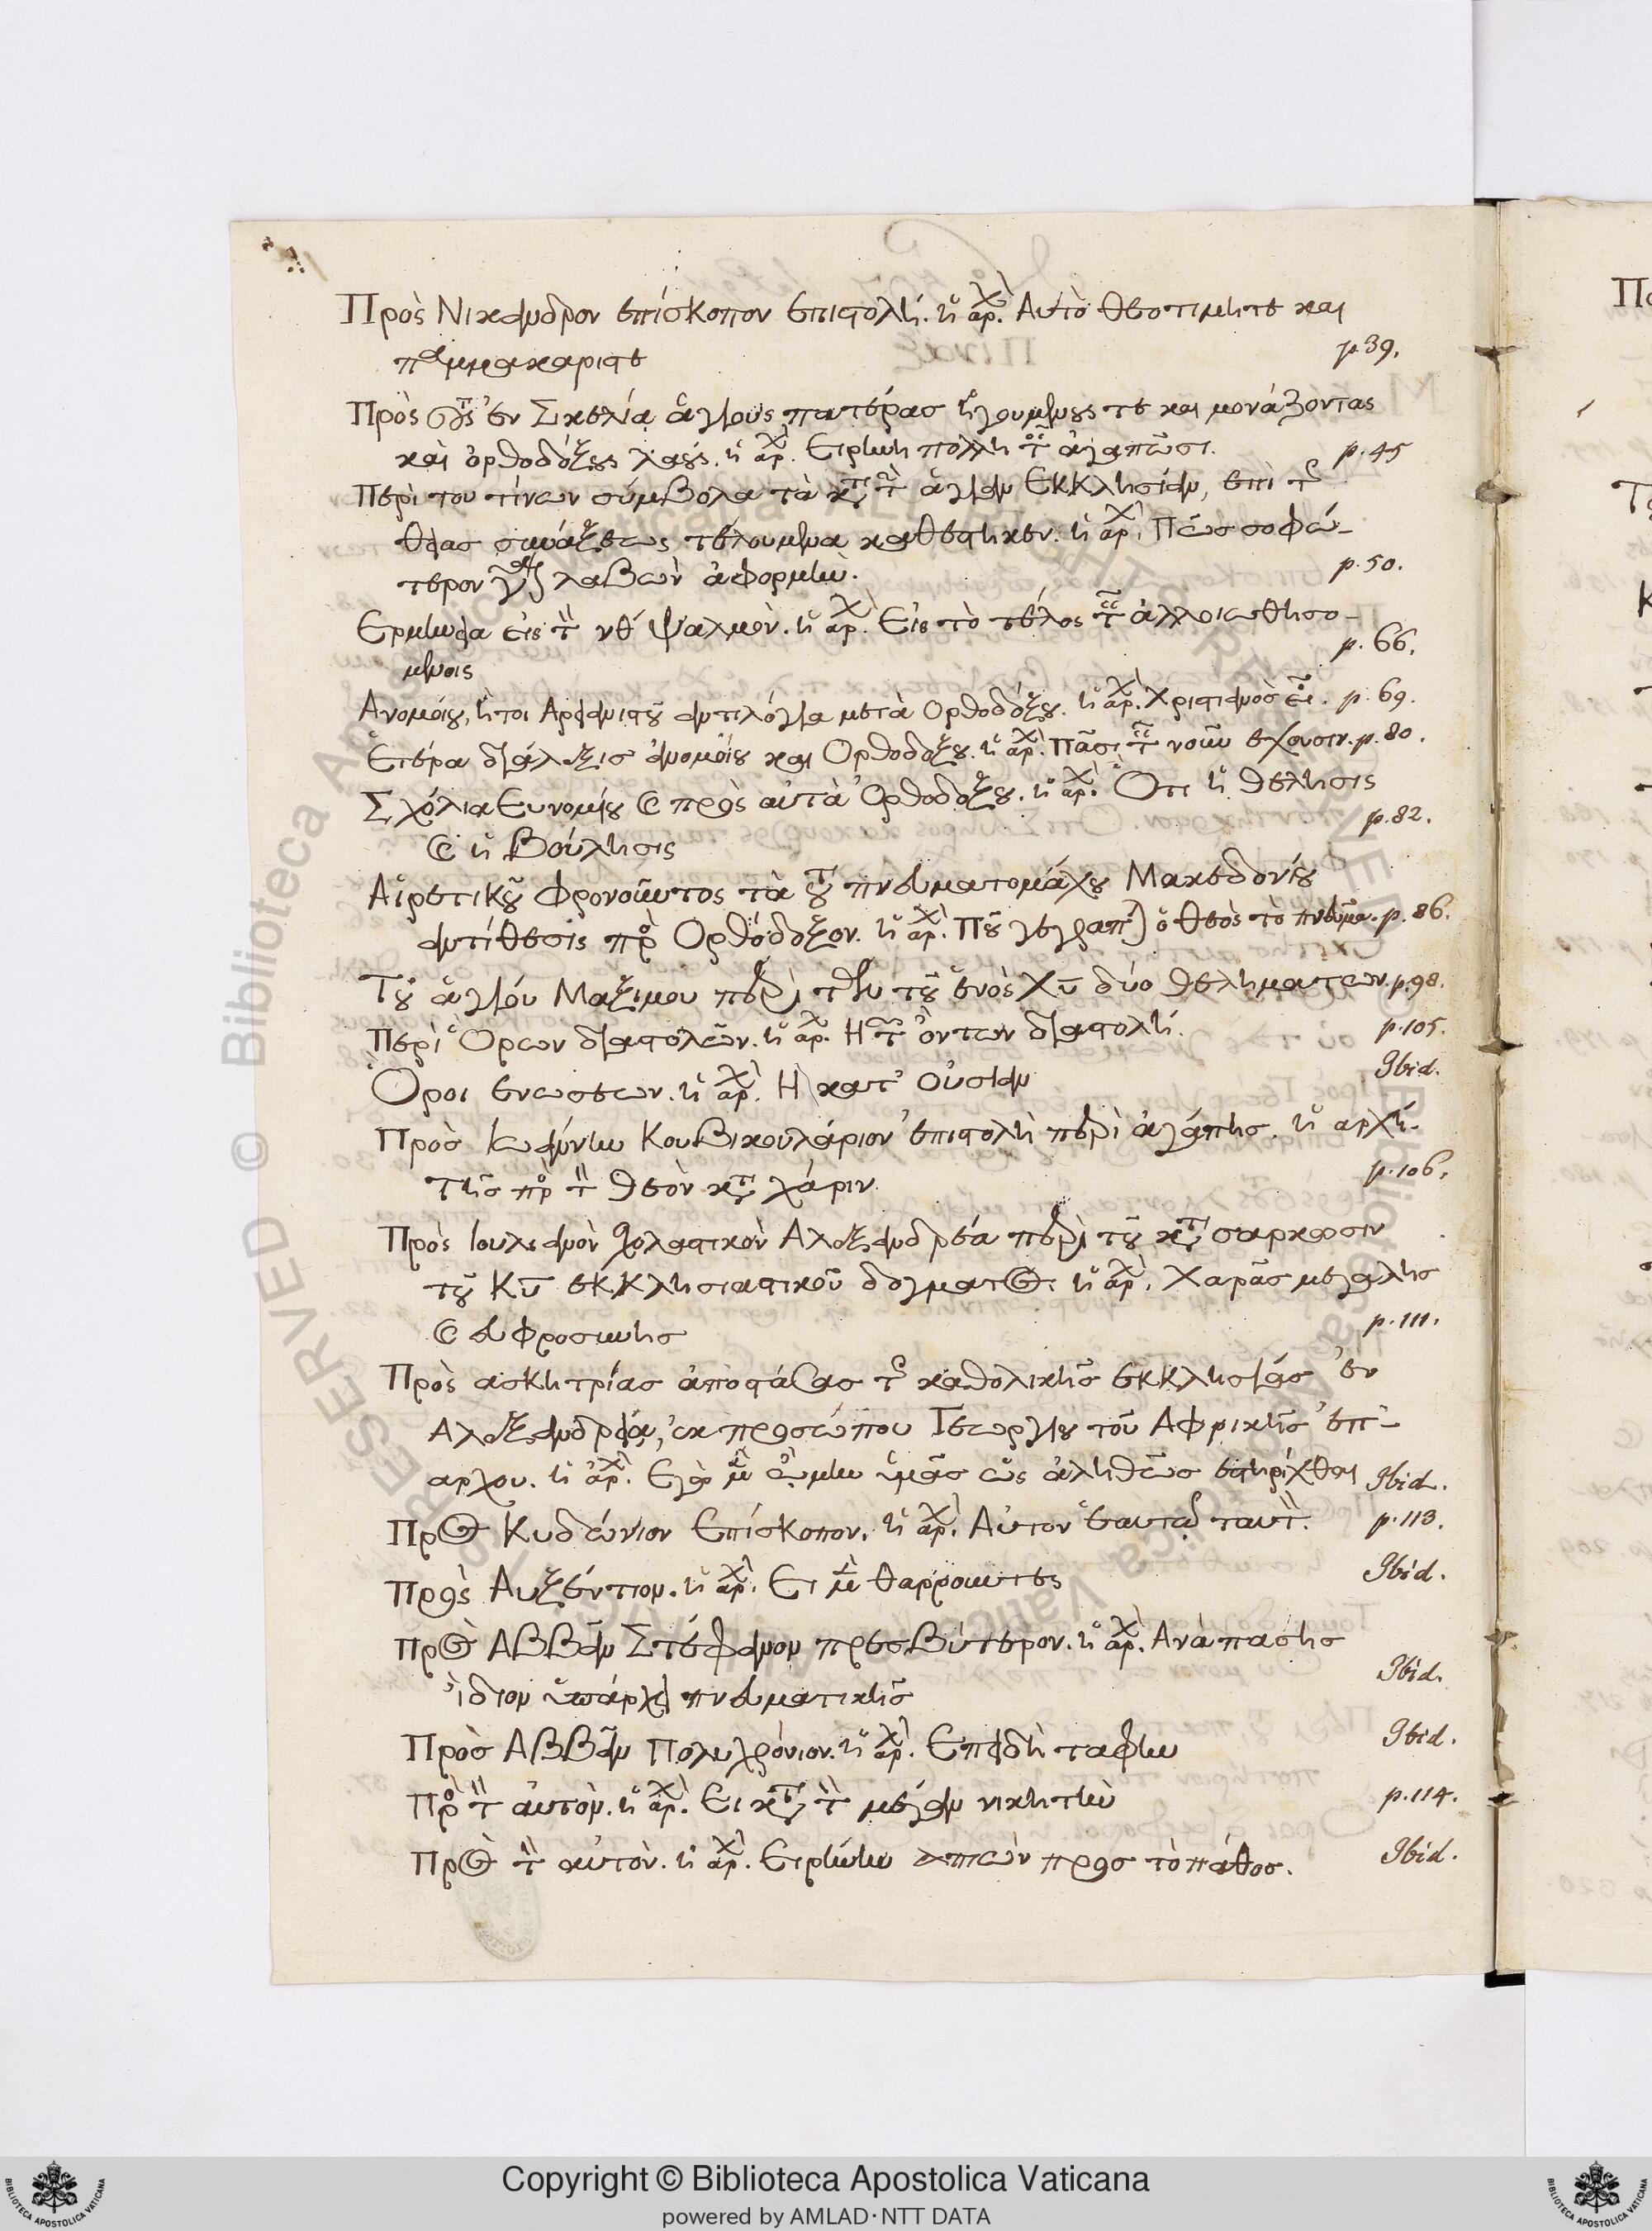 Πρὸς Νικανδρον ἐπίσκοπον ἐπιστολή. ἡ ἀρχ. Αὐτὸ θεοτιμητε και
παμμακαριστε p. 39.
Πρὸς τοὺς ἐν Σικελία ἁγίους πατέρασ ἡγουμένους τε και μονάζοντας
καὶ ὀρθοδόξους λαούς. ἡ ἀρχ. Ειρήνη πολλὴ τοῖς ἀγαπῶσι. p. 45
Περὶ του τίνων σύμβολα τὰ κατὰ τὴν ἁγίαν Εκκλησίαν, ἐπὶ τῆς
θείας συνάξεως τελουμενα καθεστηκεν. ἡ ἀρχ. Πῶς σοφώ-
τερον γενηται λαβὼν ἀφορμήν. p. 50.
Ερμηνεία εἰς τὸν νθ΄ ψαλμὸν. ἡ ἀρχ. Εἰς τὸ τέλος τοῖς ἀλλοιωθησο-
μένοις p. 66.
Ανομοίου, ἤτοι Αρειανιστοῦ ἀντιλόγια μετὰ Ορθοδόξου. ἡ ἀρχ. Χριστιανὸσ εἶ. p. 69.
Ἑτέρα διάλεξισ ἀνομοίου και Ορθοδόξου. ἡ ἀρχ. Πᾶσι τοῖς νοῦν ἔχουσιν. p. 80.
Σχόλια Ευνομίου καὶ πρὸς αὐτὰ Ὀρθοδόξου. ἡ ἀρχ. Ὅτι ἡ θέλησις
καὶ ἡ Βούλησις p. 82.
Αἱρετικοῦ φρονοῦντος τὰ τοῦ πνευματομάχου Μακεδονίου
ἀντίθεσις πρὸς Ορθόδοξον. ἡ ἀρχ. Ποῦ γέγραπται ὁ θεὸς τὸ πνεῦμα. p. 86.
Τοῦ ἁγίου Μαξίμου περὶ τῶν τοῦ ἑνὸς Χυ δύο θελημάτων. p. 98.
Περὶ Ὅρων διαστολῶν. ἡ ἀρχ. Η τῶν ὄντων διαστολή. p. 105.
Ὅροι ενωσεων. ἡ ἀρχ. Η κατ' οὐσίαν Ibid.
Πρὸσ Ιωάννην Κουβικουλάριον ἐπιστολὴ περὶ ἀγάπης. ἡ αρχή.
Τῆσ πρὸς τὸν θεὸν κατὰ χάριν. p. 106.
Πρὸς Ιουλιανὸν Σχολαστικὸν Αλεξανδρέα περὶ τοῦ κατὰ σαρκωσιν
τοῦ Κυ ἐκκλησιαστικοῦ δόγματος. ἡ ἀρχ. Χαρᾶσ μεγάλησ
καὶ ευφροσυνησ p. 111.
Πρὸς ασκητρίασ ἀποστάσας τῆς καθολικῆσ εκκλησίασ ἐν
Αλεξανδρεία, ἐκ προσώπου Γεωργίου τοῦ Αφρικῆσ ἐπ-
αρχου. ἡ ἀρχ. Εγὼ μὲν ᾤμην ὑμᾶσ ὡς ἀληθῶσ ἐστηρίχθαι Ibid.
Πρὸς Κυδώνιον Επίσκοπον. ἡ ἀρχ. Αὐτον ἑαυτῷ ταυτὸν. p. 113.
Πρὸς Αυξέντιον. ἡ ἀρχ. Ει μὲν θαρρουντες Ibid.
Πρὸς Αββᾶν Στέφανον πρεσβύτερον. ἡ ἀρχ. Ανὰ πάσησ
ἴδιον ὑπάρχει πνευματικῆσ Ibid.
Πρὸσ Αββᾶν Πολυχρόνιον. ἡ ἀρχ. Επειδὴ ταφὴν Ibid.
Πρὸς τὸν αὐτὸν. ἡ ἀρχ. Ει κατὰ τὸν μέγαν νικητὴν p. 114.
Πρὸς τὸν αὐτὸν. ἡ ἀρχ. Ειρήνην ἀπιὼν προσ τὸ πάθοσ. Ibid.
Copyright © Biblioteca Apostolica Vaticana
powered by AMLAD·NTT DATA